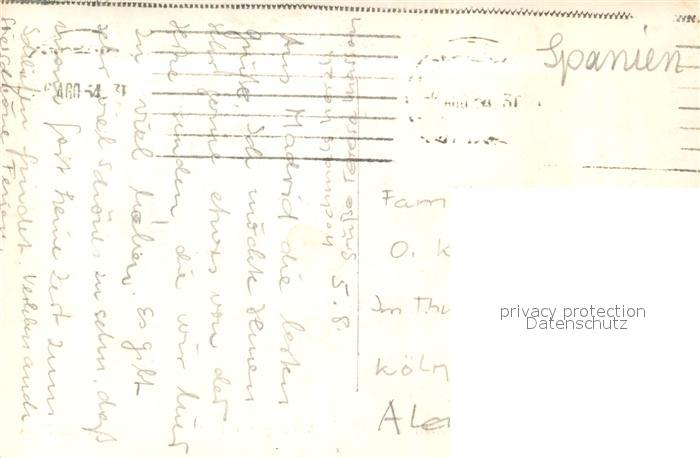 Spanien
5.8.
Aus Madrid die besten
Grüße. Ich möchte Ihnen
sehr gerne etwas von der
senden, die wir hier
zu viel haben. Es gibt
sehr viel Schönes zu sehn, daß
man fast keine Zeit zum
Schlafen findet. Verlebens auch
schöne Ferien.
Fam
O. K
Im Thu
Köln
Ale
privacy protection
Datenschutz